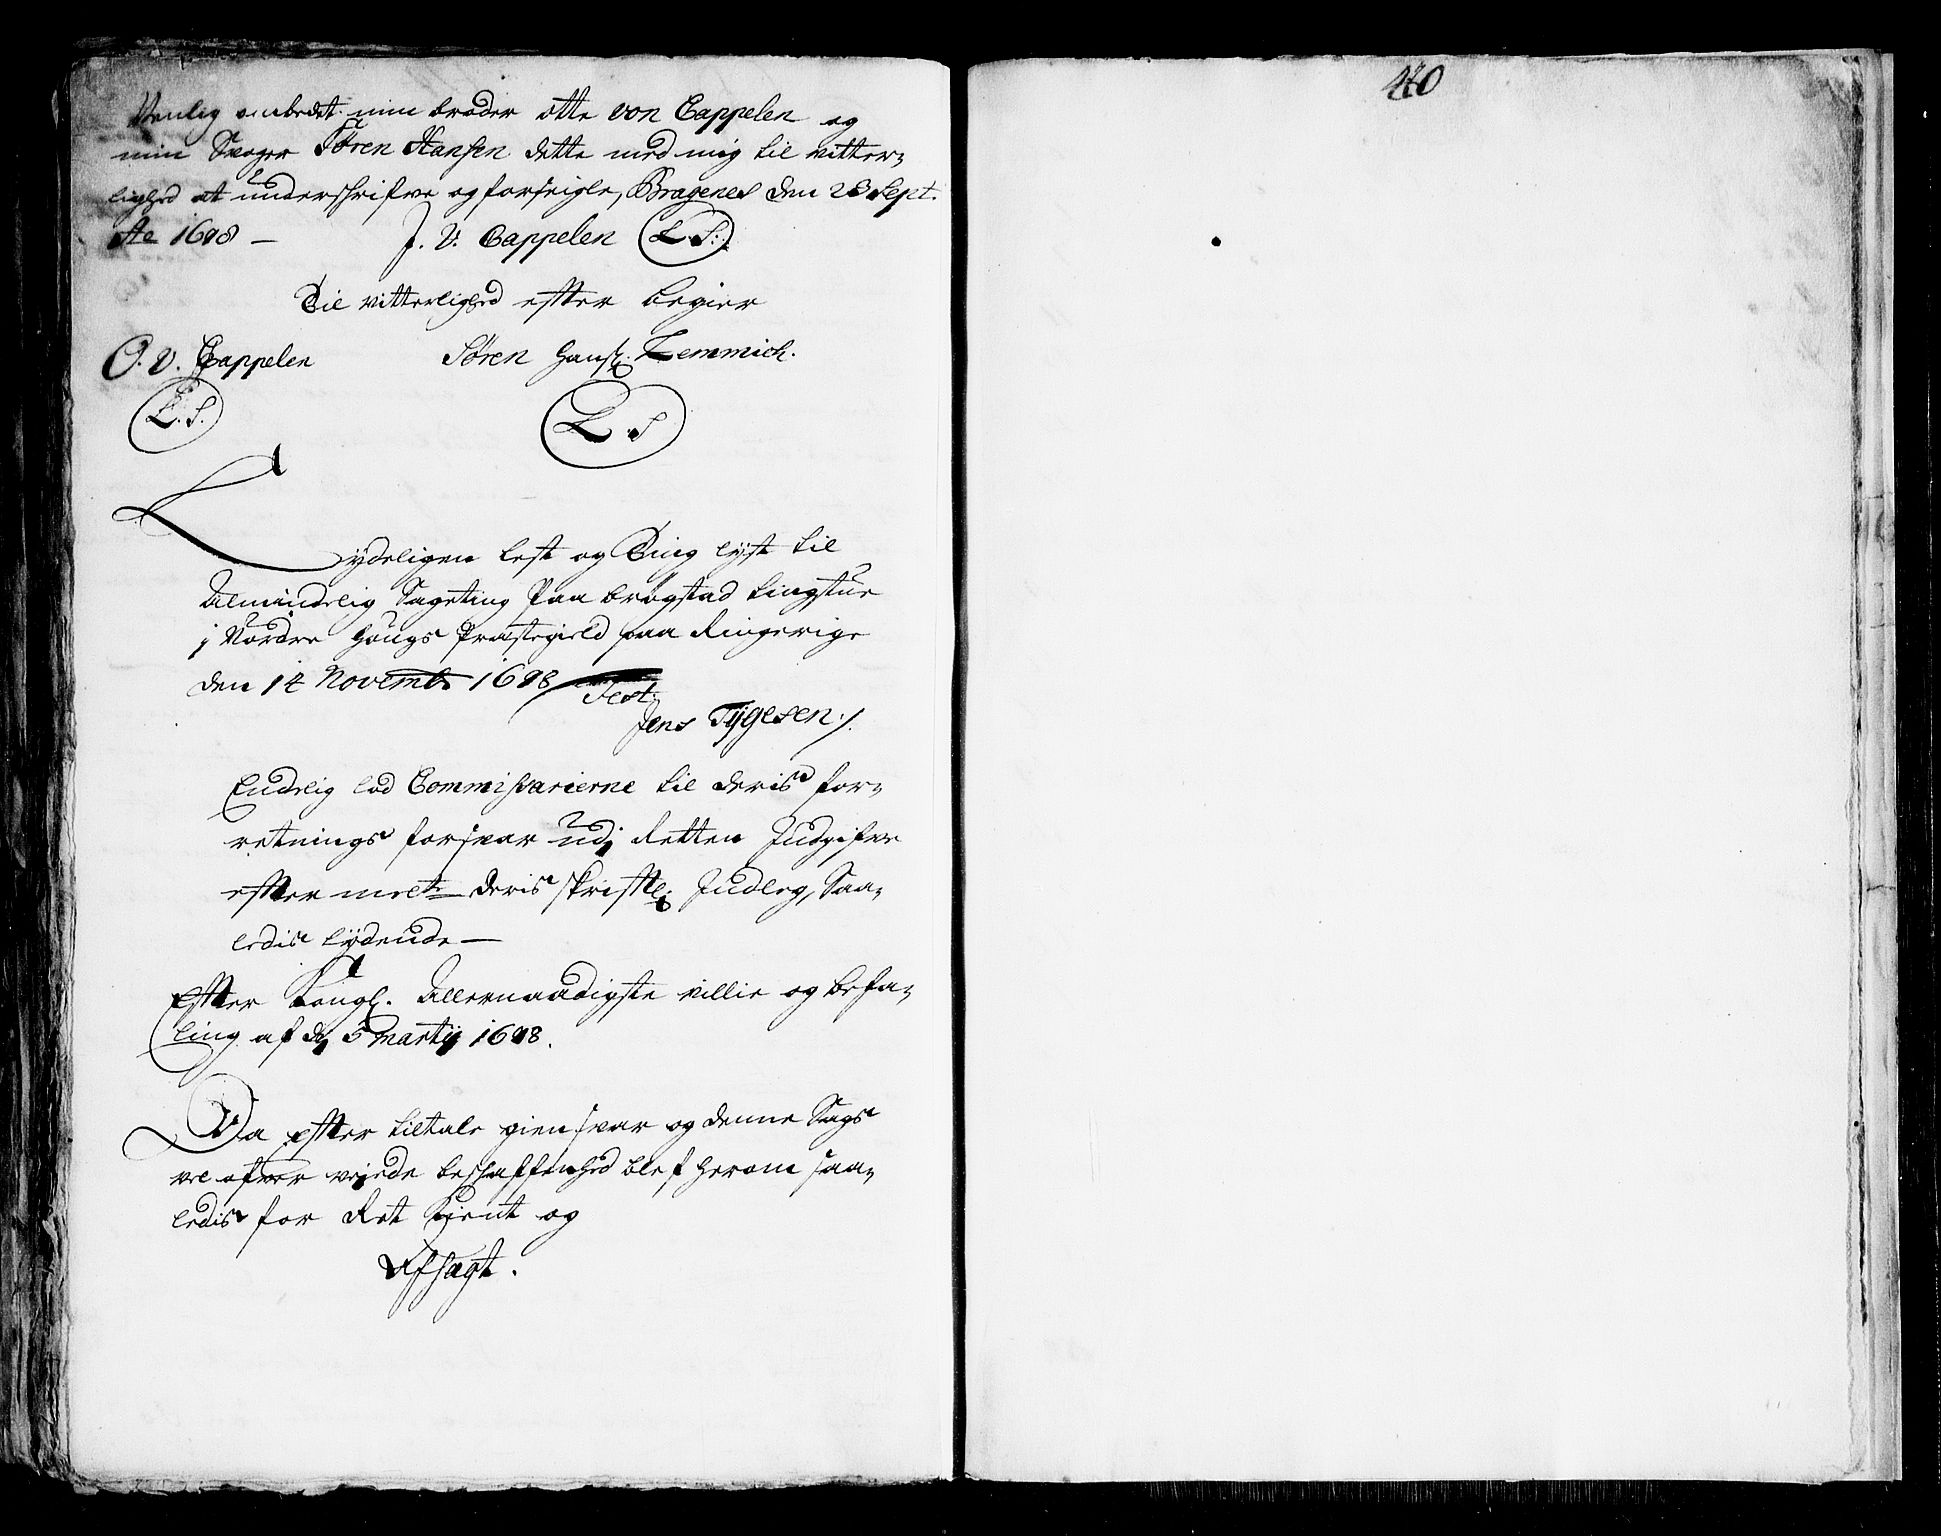 Venlig ombedet min broder otte von Cappelen og
min Svoger Sören Hansen dette med mig til vitter-
lighed at underschrifve og forseigle, Bragenes den 28 Sept.
Ao 1698 — J. V. Cappelen L. S:
Til vitterlighed effter begier
O. V. Cappelen Sören Hansß: Lemmich.
L. S. L. S
Lydeligen lest og Ting lyst til
Almindelig Sageting Paa brøgstad tingstue
j Nordre Hougs Præstegield paa Ringerige
den 14 Novemb 1698 Test
Jens Tygesen ./.
Endelig lod Commissarierne til deris for-
retnings forsvar udj Retten Indgifve
effter melte deris skrifftl: Indleg, Saa-
ledis lydende —
Effter Kongl. Allernaadigste villie og befa-
ling af dn 5 Martij 1698.
Da effter tiltale giensvar og denne Sags
vel ofver vejede beschaffenhed blef herom saa-
ledis for Ret Kient og
Afsagt.
470